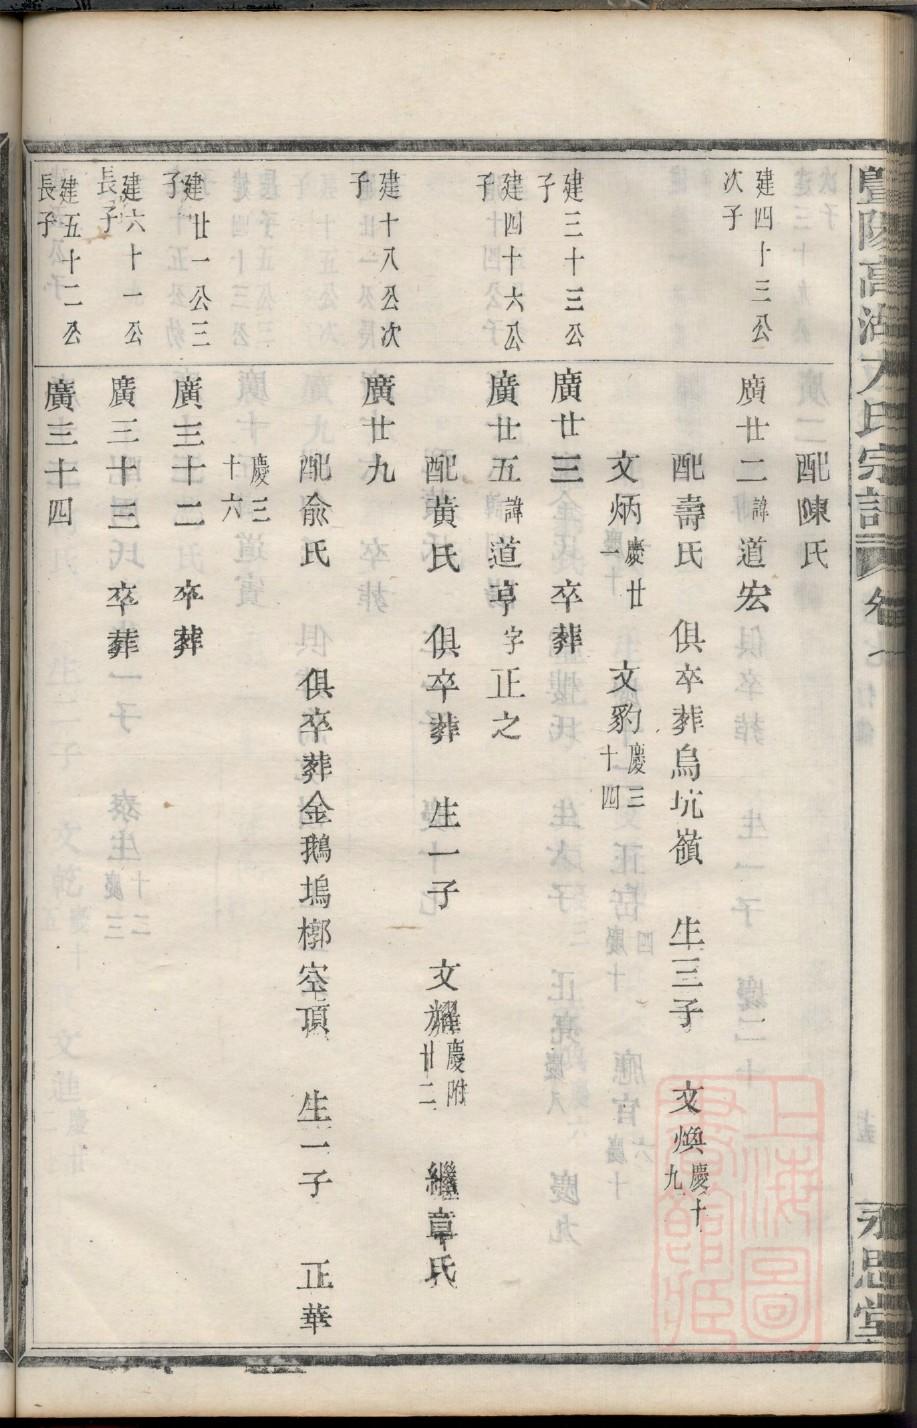 暨陽高湖方氏宗譜 卷一 永思堂
配陳氏
建四十三公次子 廣廿二諱道宏
配壽氏 俱卒葬烏坑嶺 生三子 文煥慶十九
文炳慶廿一 文豹慶三十四
建三十三公子 廣廿三 卒葬
建四十六公子 廣廿五諱道亨字正之
配黃氏 俱卒葬 生一子 文耀慶附廿二 繼章氏
建十八公次子 廣廿九
配俞氏 俱卒葬金鵝塢槨空頂 生一子 正華
慶三十六
建廿一公三子 廣三十二 卒葬
建六十一公長子 廣三十三 卒葬
建五十二公長子 廣三十四
上海圖書館藏